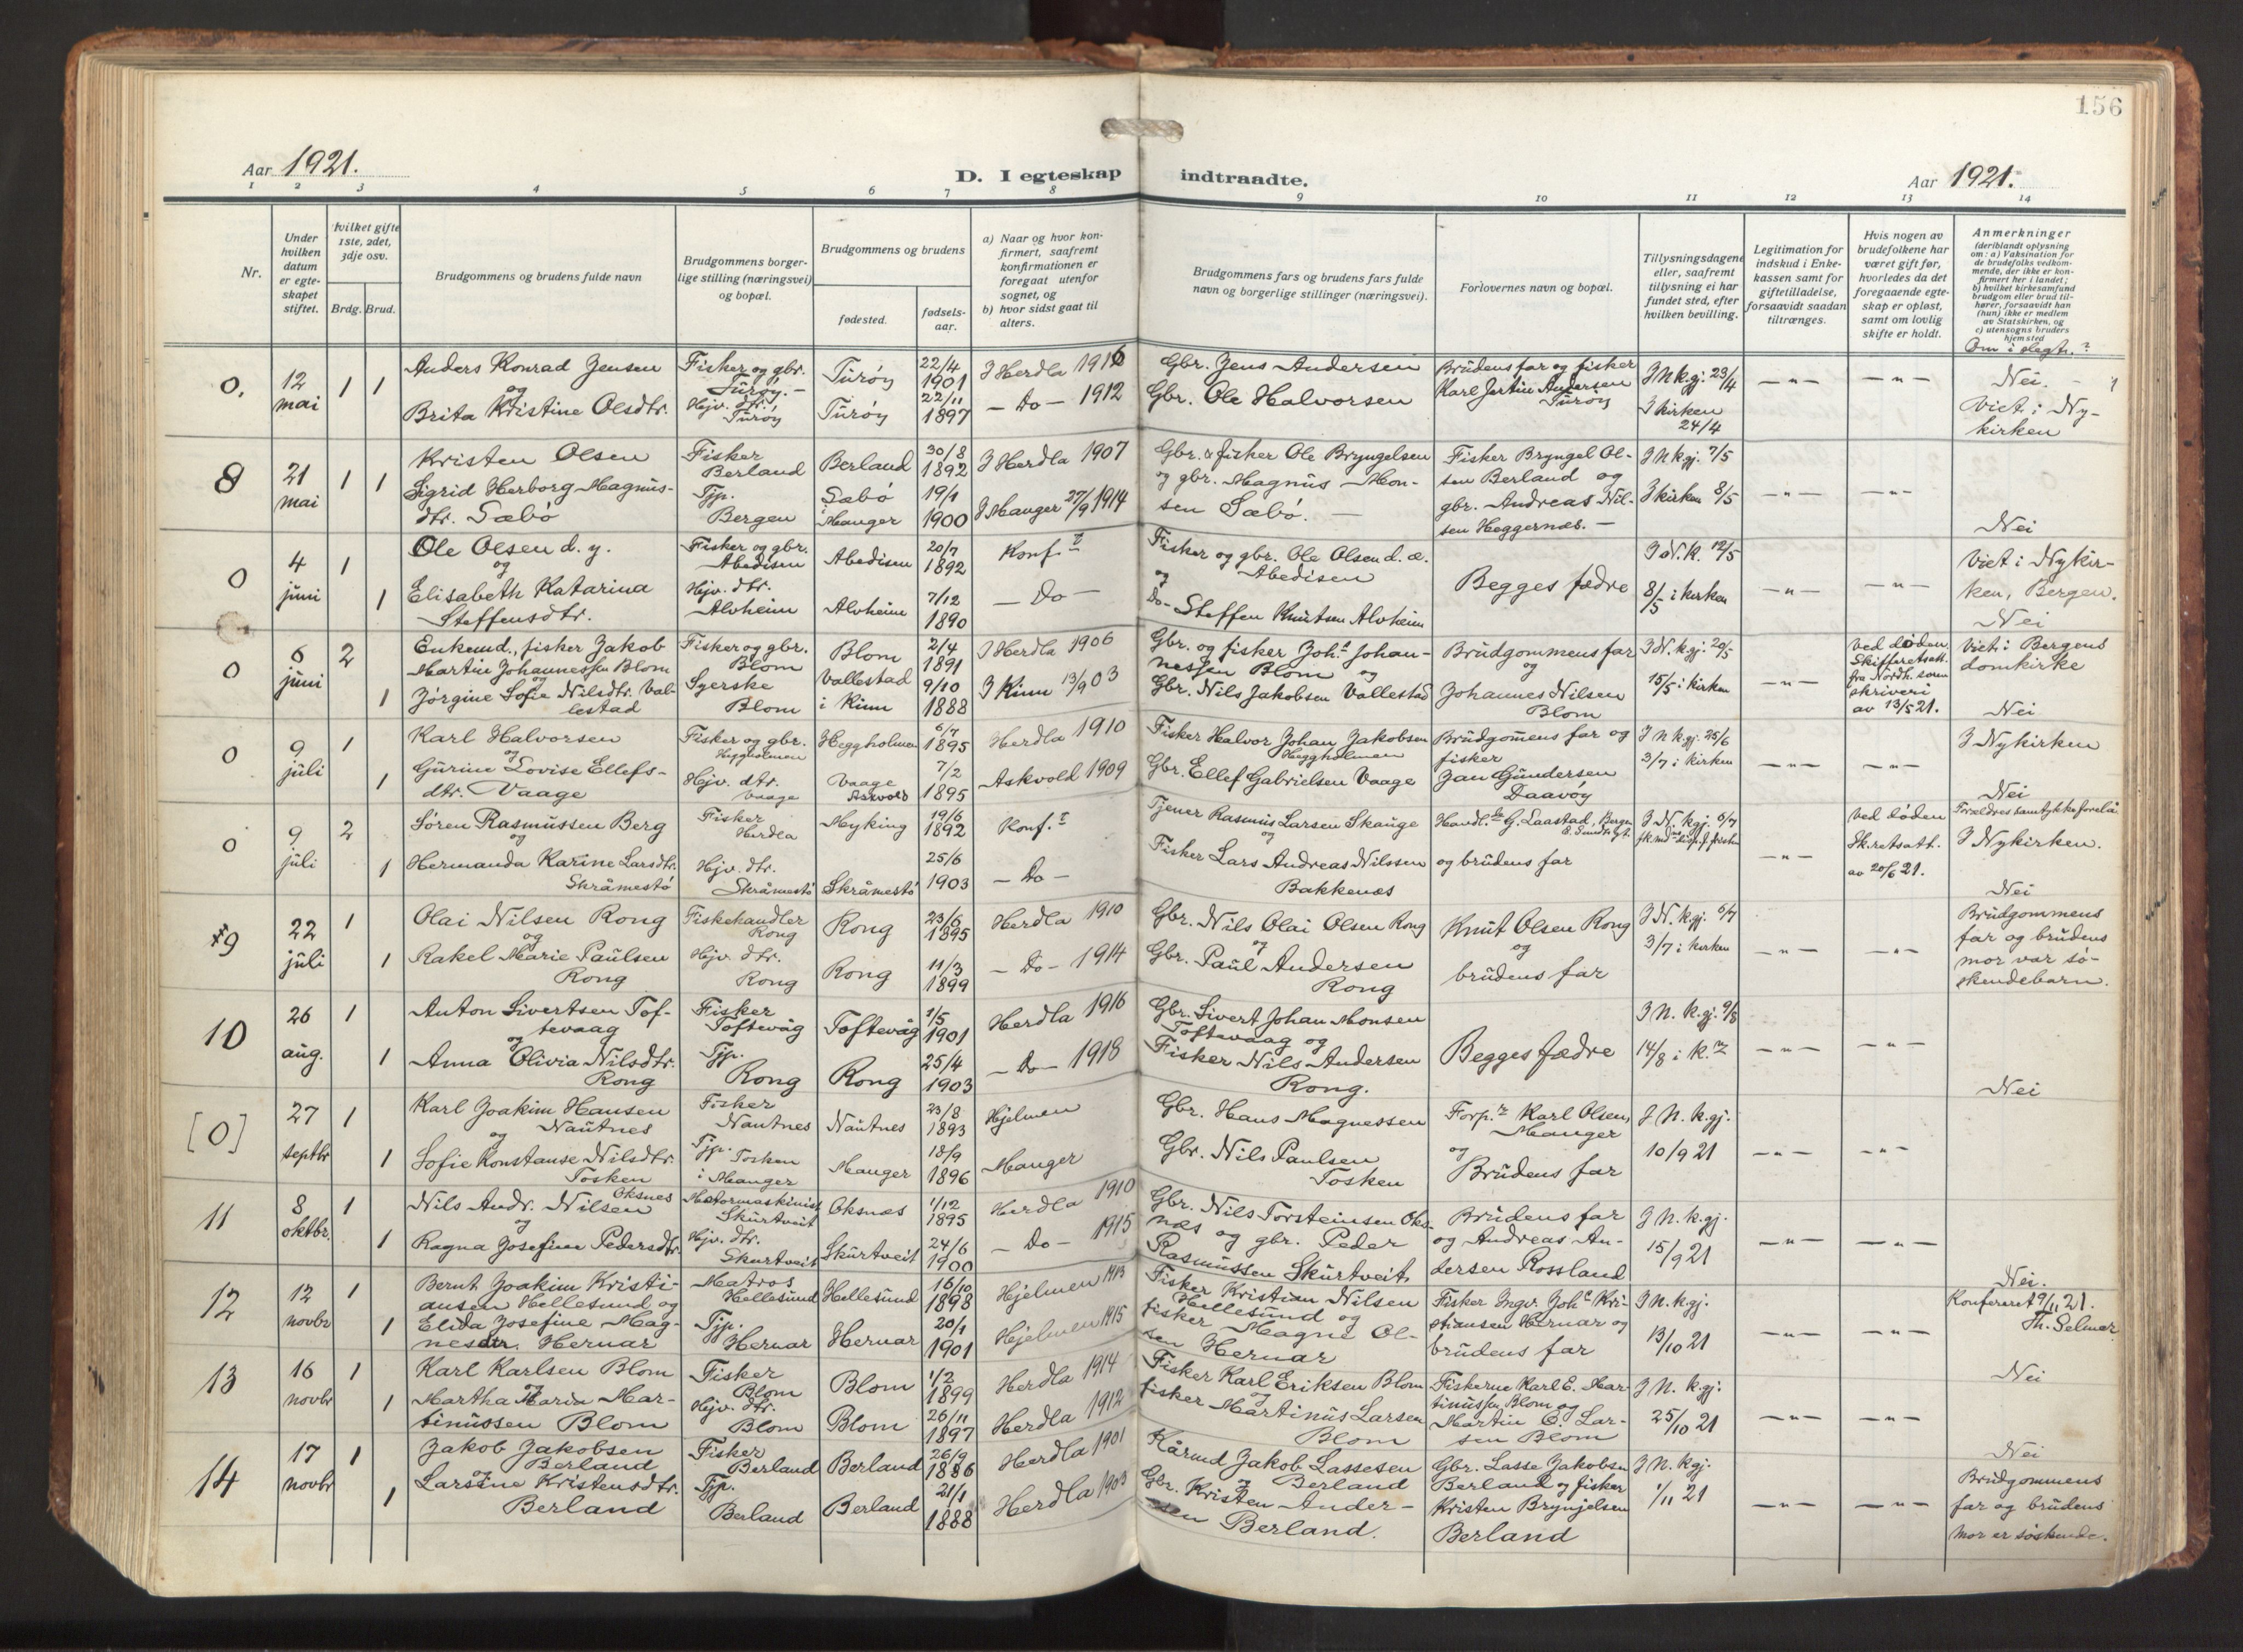 156
Aar 1921.
D. I egteskap indtraadte.
Aar 1921.
1 2 3 4 5 6 7 8 9 10 11 12 13 14
Nr.
Under hvilken datum er egteskapet stiftet.
hvilket gifte 1ste, 2det, 3dje osv.
Brdg. Brud.
Brudgommens og brudens fulde navn
Brudgommens borgerlige stilling (næringsvei) og bopæl.
Brudgommens og brudens
fødested.
fødselsaar.
a) Naar og hvor konfirmert, saafremt konfirmationen er foregaat utenfor sognet, og
b) hvor sidst gaat til alters.
Brudgommens fars og brudens fars fulde navn og borgerlige stillinger (næringsvei).
Forlovernes navn og bopæl.
Tillysningsdagene eller, saafremt tillysning ei har fundet sted, efter hvilken bevilling.
Legitimation for indskud i Enkekassen samt for giftetilladelse, forsaavidt saadan tiltrænges.
Hvis nogen av brudefolkene har været gift før, hvorledes da det foregaaende egteskap er opløst, samt om lovlig skifte er holdt.
Anmerkninger
(deriblandt oplysning om: a) Vaksination for de brudefolks vedkommende, der ikke er konfirmert her i landet;
b) hvilket kirkesamfund brudgom eller brud tilhører, forsaavidt han (hun) ikke er medlem av Statskirken, og
c) utensogns bruders hjemsted
Om i slegt.?
0. 12 mai 1 1
Anders Konrad Jensen
og
Brita Kristine Olsdtr.
Fisker og gbr. Turøy. —
Hjv. dtr. Turøy
Turøy
Turøy
22/4 1901
22/11 1897
I Herdla 1916
— Do — 1912
Gbr. Jens Andersen
Gbr. Ole Halvorsen
Brudens far og fisker
Karl Jertin Andersen
Turøy
I N k.gj. 23/4
I kirken
24/4
— " — — " —
Nei. —
Viet i Nykirken
8 21 mai 1 1
Kristen Olsen
Sigrid Herborg Magnusdtr. Sæbø
Fisker Berland
Tjp. Bergen
Berland
Sæbø i Manger
30/8 1892
19/1 1900
I Herdla 1907
I Manger 27/9 1914
Gbr. & fisker Ole Bryngelsen
og gbr. Magnus Monsen Sæbø. —
Fisker Bryngel Olsen Berland og
gbr. Andreas Nilsen Heggernæs. —
I N k.gj. 7/5
I kirken 8/5
— " — — " —
Nei
0 4 juni 1 1
Ole Olsen d. y.
og
Elisabeth Katarina
Steffensdtr.
Fisker og gbr. Abedisen
Hjv. dtr. Alvheim
Abedisen
Alvheim
20/7 1892
7/12 1890
Konf.
— Do —
Fisker og gbr. Ole Olsen d. æ.
og Abedisen
Do — Steffen Knutsen Alvheim
Begges fædre
I N. K. 12/5
8/5 i kirken
— " — — " —
Viet i Nykirken, Bergen.
Nei
0 6 juni 2 1
Enkemd., fisker Jakob
Martin Johannessen Blom
og
Jørgine Sofie Nilsdtr. Vallestad
Fisker og gbr. Blom
Syerske Blom
Blom
Vallestad i Kinn
2/4 1891
9/10 1888
I Herdla 1906
I Kinn 13/9 03
Gbr. og fisker Joh.s Johannessen Blom og
Gbr. Nils Jakobsen Vallestad
Brudgommens far
og
Johannes Nilsen
Blom
I N. k.gj. 20/5
15/5 i kirken
— " —
Ved døden.
Skifteretsatt.
fra Nordh. sorenskriveri
av 13/5 21.
Viet i Bergens
domkirke
Nei
0 9 juli 1 1
Karl Halvorsen
og
Gurine Lovise Ellefsdtr. Vaage
Fisker og gbr. Heggholmen
Hjv. dtr. Vaage
Heggholmen
Vaage Askvold
6/7 1895
7/2 1895
Herdla 1910
Askvold 1909
Fisker Halvor Johan Jakobsen
Heggholmen
Gbr. Ellef Gabrielsen Vaage
Brudgomens far og
fisker
Jan Gundersen
Daavøy
I N k.gj. 25/6
3/7 i kirken
— " — — " —
I Nykirken
Nei
0 9 juli 2 1
Søren Rasmussen Berg
og
Hermanda Karine Larsdtr.
Skråmestø
Fisker Herdla
Hjv. dtr. Skråmestø
Myking
Skråmestø
19/6 1892
25/6 1903
Konf.
— Do —
Tjener Rasmus Larsen Skauge
og
Fisker Lars Andreas Nilssen
Bakkenæs
Handl. G. Laastad, Bergen
og brudens far
I N. k.gj. 6/7
— " —
Ved døden
Sk.retsatt.
av 20/6 21.
Forældres samtykke forelå
I Nykirken.
Nei
9 22 juli 1 1
Olai Nilsen Rong
og
Rakel Marie Paulsen
Rong
Fiskehandler Rong
Hjv. dtr. Rong
Rong
Rong
23/6 1895
11/3 1899
Herdla 1910
— Do — 1914
Gbr. Nils Olai Olsen Rong
og
Gbr. Paul Andersen
Rong
Knut Olsen Rong
og
brudens far
I N. k.gj. 6/7
3/7 i kirken
— " — — " —
Brudgommens
far og brudens
mor var søskendebarn.
10 26 aug. 1 1
Anton Sivertsen Toftevaag
og
Anna Olivia Nilsdtr.
Rong
Fisker Toftevåg
Tjp. Rong
Toftevåg
Rong
1/5 1901
25/4 1903
Herdla 1916
— Do — 1918
Gbr. Sivert Johan Monsen
Toftevaag og
Fisker Nils Andersen
Rong.
Begges fædre
I N. k.gj. 9/8
14/8 i k.
— " — — " —
Nei
[0] 27 septbr 1 1
Karl Joakim Hansen
og Nautnes
Sofie Konstanse Nilsdtr.
Tosken
Fisker Nautnes
Tjp. Tosken i Manger
Nautnes
Manger
23/8 1893
18/9 1896
Hjelmen
Manger
Gbr. Hans Magnessen
Gbr. Nils Paulsen
Tosken
Forp. Karl Olsen,
Manger
og
Brudens far
I N. k.gj.
10/9 21
— " — — " —
11 8 oktbr. 1 1
Nils Andr. Nilsen Oksnes
og
Ragna Josefine Pedersdtr.
Motormaskinist Skurtveit
Hjv. dtr. Skurtveit
Oksnæs
Skurtveit
1/12 1895
24/6 1900
Herdla 1910
— Do — 1915
Gbr. Nils Torsteinsen Oksnæs og gbr. Peder
Rasmussen Skurtveit
Brudens far
og Andreas Andersen Rossland
I N. k.gj.
15/9 21
— " — — " —
Nei.
12 12 novbr 1 1
Bernt Joakim Kristiansen Hellesund og
Elida Josefine Magnesdtr. Hernar
Matros Hellesund
Tjp. Hernar
Hellesund
Hernar
16/10 1898
20/1 1901
Hjelmen 1913
Hjelmen 1915
Fisker Kristian Nilsen
Hellesund og
fisker Magne Olsen Hernar
Fisker Ingv. Joh. Kristiansen Hernar og
brudens far
I N. k.gj.
13/10 21
— " — — " —
Konfereret 9/11 21.
Th. Selmer
Nei
13 16 novbr 1 1
Karl Karlsen Blom
og
Martha Maria Martinussen Blom
Fisker Blom
Hjv. dtr. Blom
Blom
Blom
1/2 1899
26/11 1897
Herdla 1914
Herdla 1912
Fisker Karl Eriksen Blom
og
fisker Martinus Larsen
Blom
Fiskerne Karl E. Martinussen Blom og
Martin E. Larsen Blom
I N. k.gj.
25/10 21
— " — — " —
Nei
14 17 novbr 1 1
Jakob Jakobsen
Berland
og
Larsine Kristensdtr.
Berland
Fisker Berland
Tjp. Berland
Berland
Berland
26/9 1886
21/1 1888
Herdla 1901
Herdla 1903
Kårmd Jakob Lassesen
og Berland
Gbr. Kristen Andersen Berland.
Gbr. Lasse Jakobsen
Berland og fisker
Kristen Brynjelsen
Berland
I N. k.gj.
1/11 21
— " — — " —
Brudgommens
far og brudens
mor er søskende.